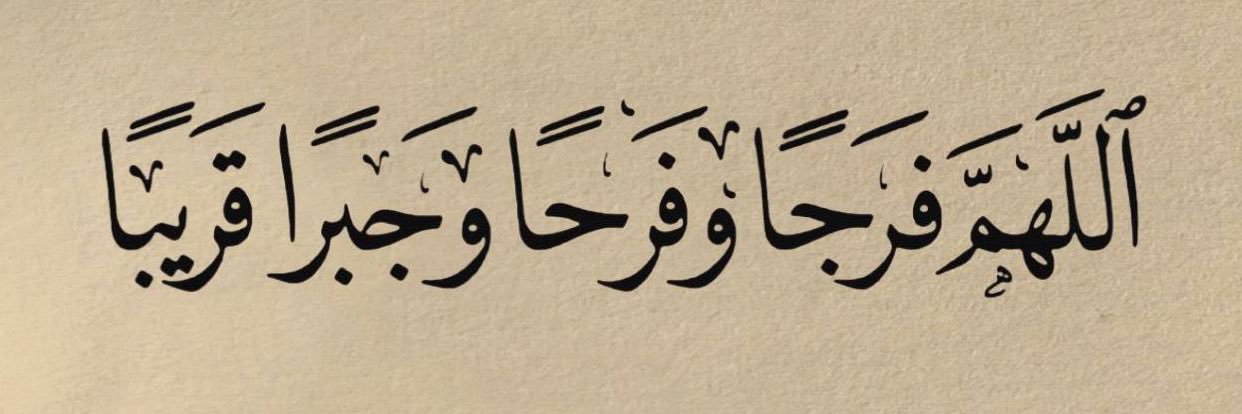 ٱللَّهُمَّ فَرَجًا وَفَرَحًا وَجَبرًا قَرِيبًا